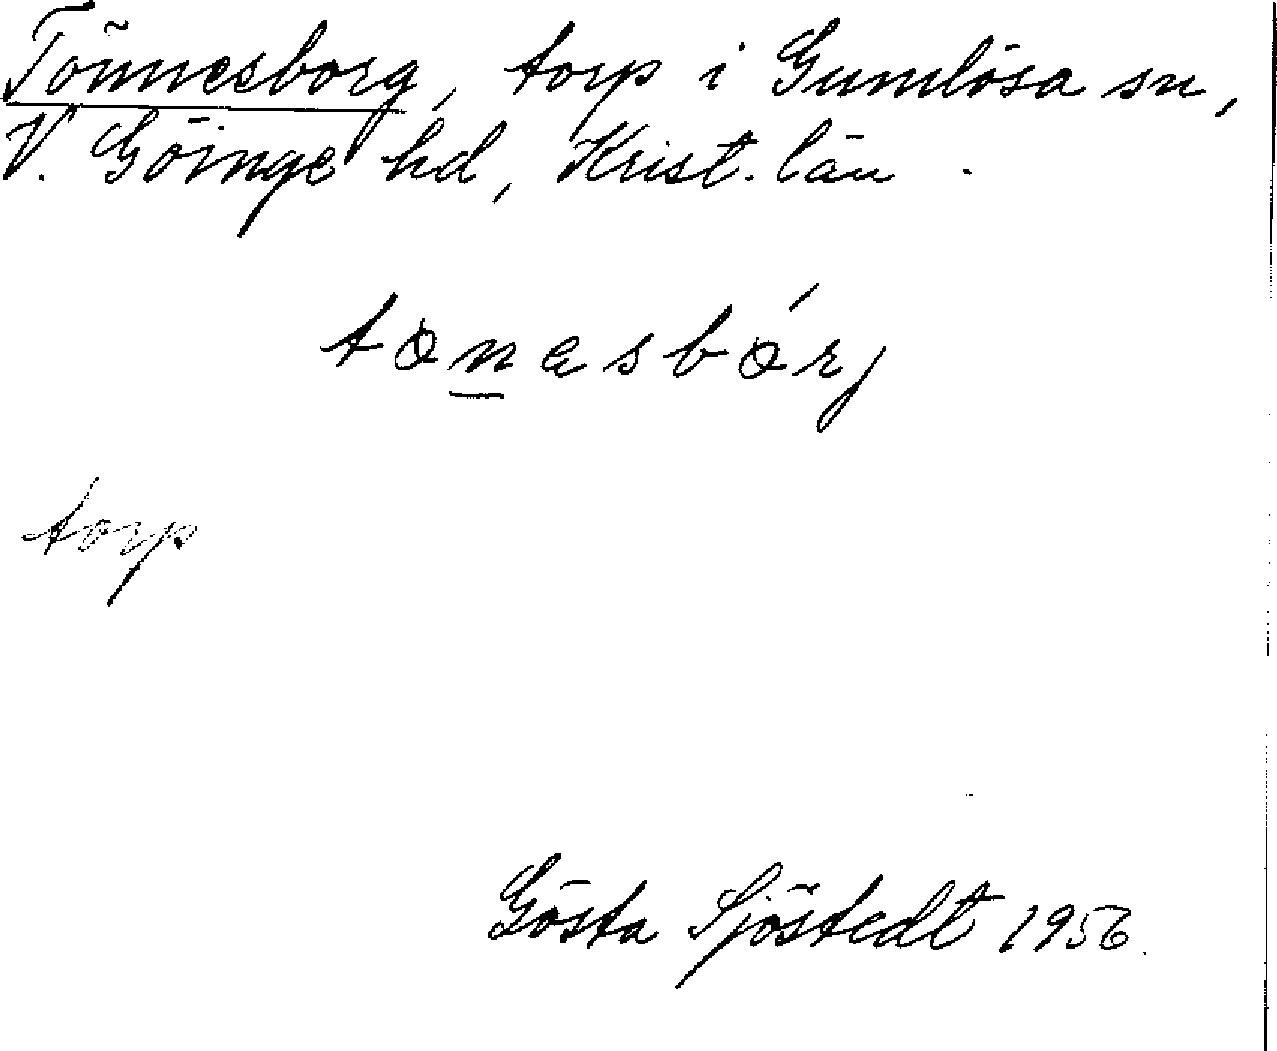 Tönnesborg, torp i Gumlösa sn,
V. Göinge hd, Krist. län.
torp
Gösta Sjöstedt 1956.